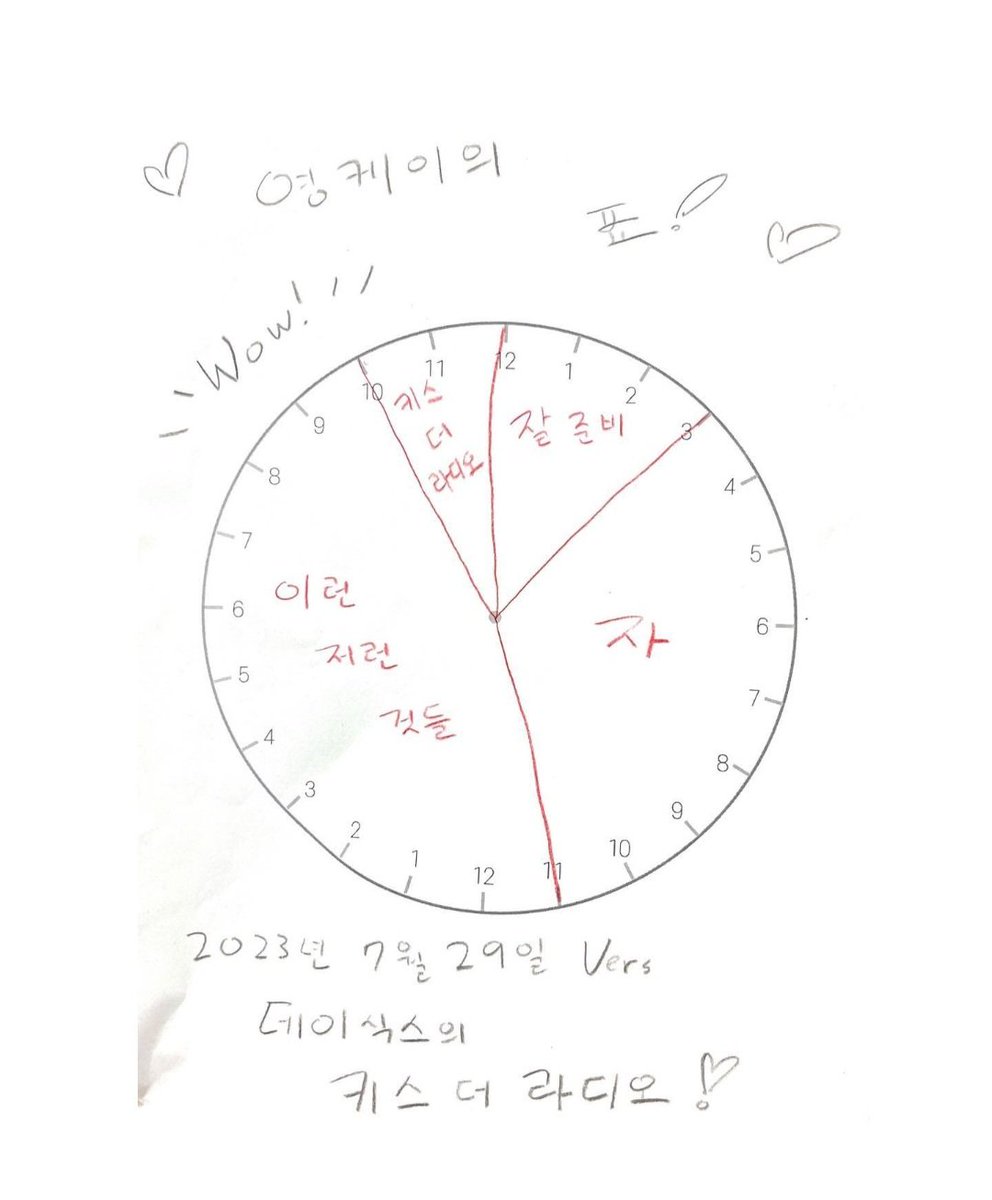 영케이의
표!
Wow!
12
1
2
3
4
5
6
7
8
9
10
11
12
1
2
3
4
5
6
7
8
9
10
11
키스
더
라디오
잘 준비
자
이런
저런
것들
2023년 7월 29일 Vers
데이식스의
키스 더 라디오!